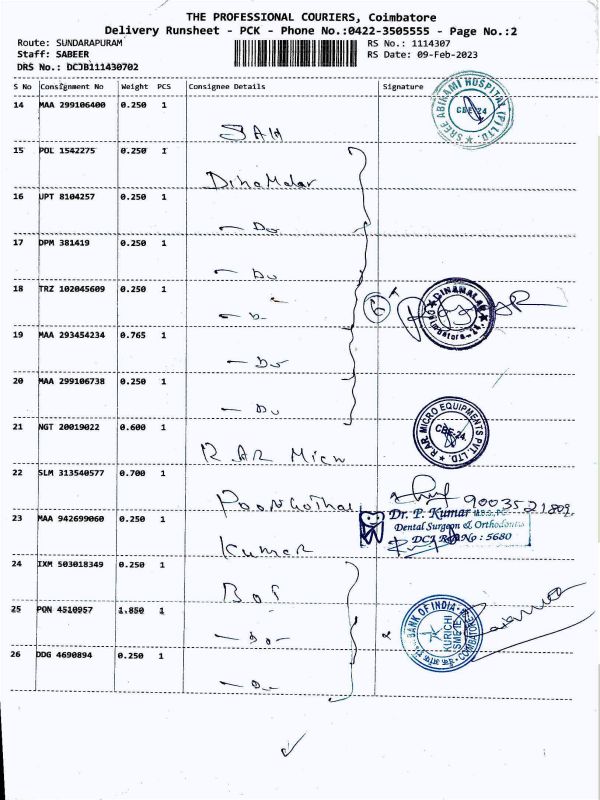 THE PROFESSIONAL COURIERS, Coimbatore
Delivery Runsheet - PCK - Phone No.:0422-3505555 - Page No.:2
Route: SUNDARAPURAM RS No.: 1114307
Staff: SABEER RS Date: 09-Feb-2023
DRS No.: DCJB111430702
S No Consignment No Weight PCS Consignee Details Signature
14 MAA 299106400 0.250 1
SREE ABIRAMI HOSPITAL (P) LTD. CBE-24
SAH
15 POL 1542275 0.250 1
DinaMalar
16 UPT 8104257 0.250 1
— Do
17 DPM 381419 0.250 1
— Do
18 TRZ 102045609 0.250 1
6
DINAMALAR Coimbatore-24.
— Do
19 MAA 293454234 0.765 1
— Do
20 MAA 299106738 0.250 1
— Do
21 NGT 20019022 0.600 1
R.AR. MICRO EQUIPMENTS PVT. LTD. CBE-24.
RAR Micro
22 SLM 313540577 0.700 1
9003521809
Poongothai
23 MAA 942699060 0.250 1
Dr. P. Kumar
Dental Surgeon & Orthodontis
DCI Reg No : 5680
Kumar
24 IXM 503018349 0.250 1
BOI
25 PON 4510957 1.850 1
BANK OF INDIA KURICHI SME BR. COIMBATORE
— Do —
26 DDG 4690894 0.250 1
— Do